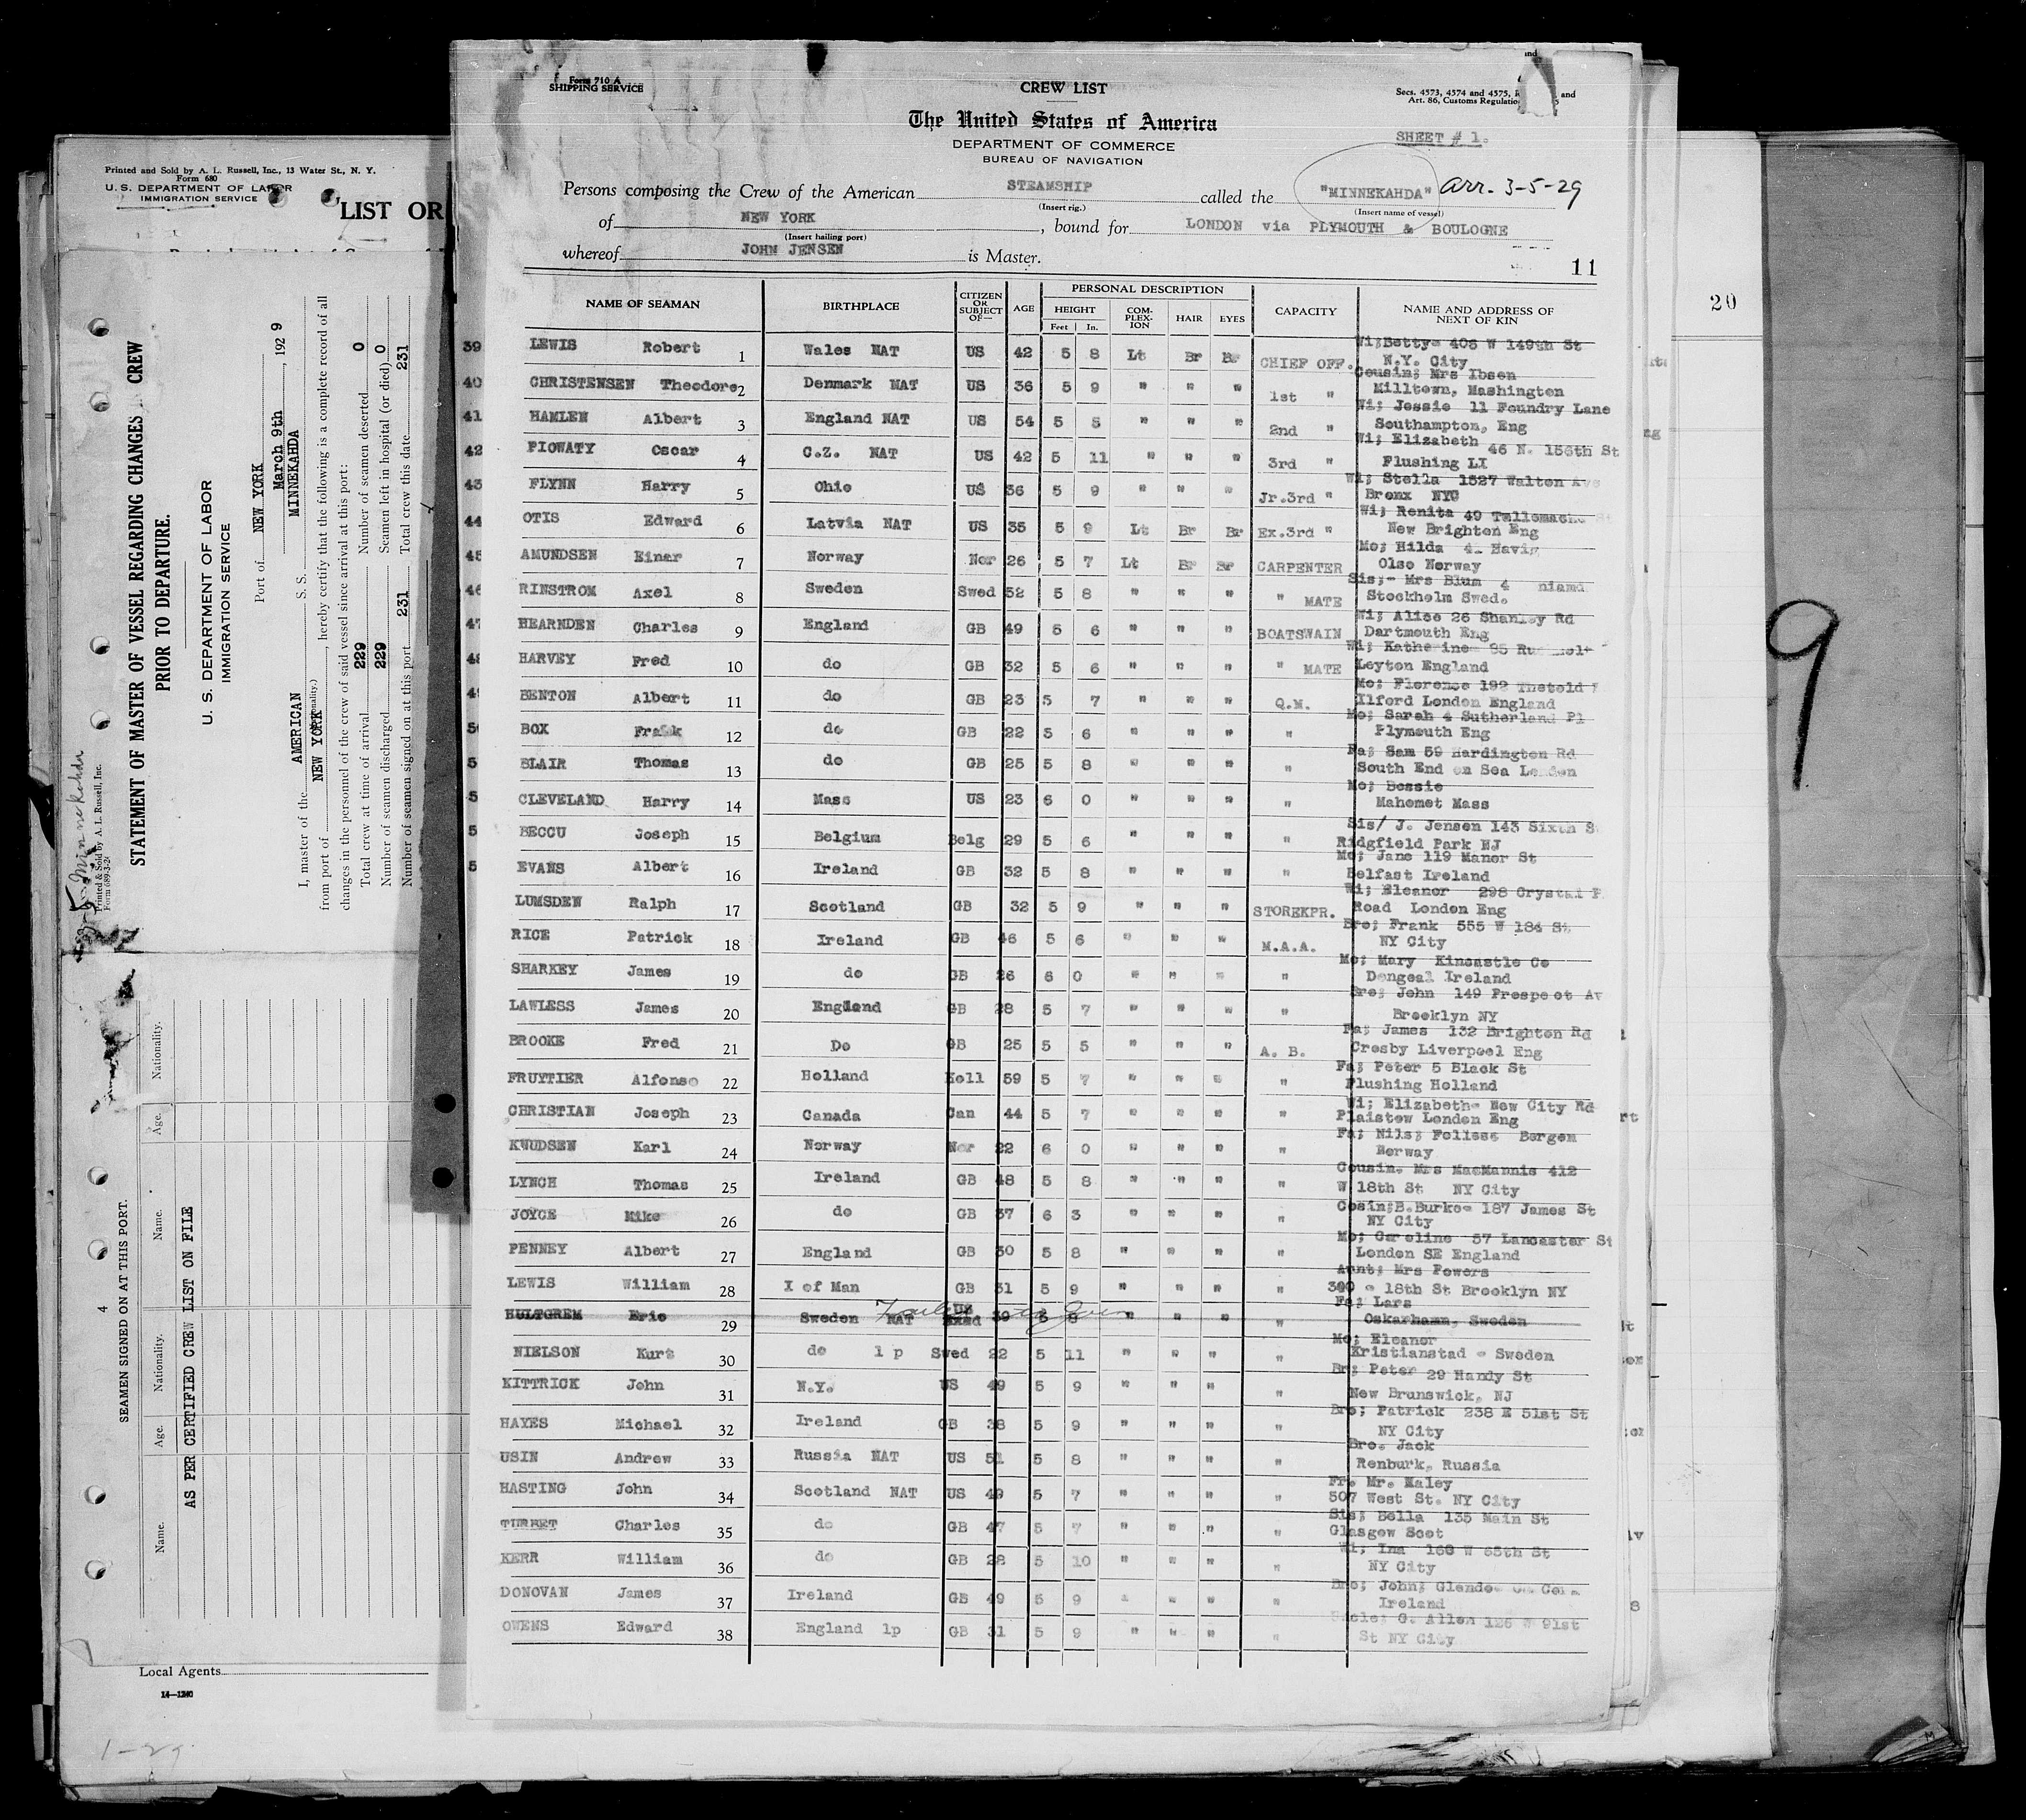 Form 710 A
SHIPPING SERVICE
CREW LIST
Secs. 4573, 4574 and 4575, and
Art. 86, Customs
The United States of America
DEPARTMENT OF COMMERCE
BUREAU OF NAVIGATION
SHEET # 1.
Persons composing the Crew of the American STEAMSHIP called the "MINNEKAHDA" arr. 3-5-29
(Insert rig.) (Insert name of vessel)
of NEW YORK, bound for LONDON via PLYMOUTH & BOULOGNE
(Insert hailing port)
whereof JOHN JENSEN is Master.
11
NAME OF SEAMAN BIRTHPLACE CITIZEN OR SUBJECT OF— AGE PERSONAL DESCRIPTION CAPACITY NAME AND ADDRESS OF NEXT OF KIN
HEIGHT COM-PLEX-ION HAIR EYES
Feet In.
39 LEWIS Robert 1 Wales NAT US 42 5 8 Lt Br Br CHIEF OFF. Wi;Betty- 405 W 149th St
N.Y. City
40 CHRISTENSEN Theodore 2 Denmark NAT US 36 5 9 " " " 1st " Cousin; Mrs Ibsen
Milltown, Mashington
41 HAMLEN Albert 3 England NAT US 54 5 5 " " " 2nd " Wi; Jessie 11 Foundry Lane
Southampton, Eng
42 PIOWATY Oscar 4 C.Z. NAT US 42 5 11 " " " 3rd " Wi; Elizabeth
46 N. 156th St
Flushing LI
43 FLYNN Harry 5 Ohio US 36 5 9 " " " Jr.3rd " Wi; Stella 1527 Walton Ave
Bronx NYC
44 OTIS Edward 6 Latvia NAT US 35 5 9 Lt Br Br Ex.3rd " Wi; Renita 49
New Brighton Eng
45 AMUNDSEN Einar 7 Norway Nor 26 5 7 Lt Br Br CARPENTER Mo; Hilda
Olso Norway
46 RINSTROM Axel 8 Sweden Swed 52 5 8 " " " " MATE Sis;- Mrs Blum 4
Stockholm Swed.
47 HEARNDEN Charles 9 England GB 49 5 6 " " " BOATSWAIN Wi; Alice 26 Shanley Rd
Dartmouth Eng
48 HARVEY Fred 10 do GB 32 5 6 " " " " MATE Wi; Katherine- 95
Leyton England
49 BENTON Albert 11 do GB 23 5 7 " " " Q.M. Mo; Florence 192
Ilford London England
BOX Frank 12 do GB 22 5 6 " " " " Mo; Sarah 4 Sutherland Pl
Plymouth Eng
BLAIR Thomas 13 do GB 25 5 8 " " " " Fa; Sam 59 Hardington Rd
South End on Sea London
CLEVELAND Harry 14 Mass US 23 6 0 " " " " Mo; Bessie
Mahomet Mass
BECCU Joseph 15 Belgium Belg 29 5 6 " " " " Sis/ J. Jensen 143 Sixth S
Ridgfield Park NJ
EVANS Albert 16 Ireland GB 32 5 8 " " " " Mo; Jane 119 Manor St
Belfast Ireland
LUMSDEN Ralph 17 Scotland GB 32 5 9 " " " STOREKPR. Wi; Eleanor 298 Crystal P
Road London Eng
RICE Patrick 18 Ireland GB 46 5 6 " " " M.A.A. Bro; Frank 555 W 184 St,
NY City
SHARKEY James 19 do GB 26 6 0 " " " " Mo; Mary Kincastle Co
Dongeal Ireland
LAWLESS James 20 England GB 28 5 7 " " " " Bro; John 149 Prospect Av
Brooklyn NY
BROOKE Fred 21 Do GB 25 5 5 " " " A. B. Fa; James 132 Brighton Rd
Crosby Liverpool Eng
FRUYTIER Alfonso 22 Holland Holl 59 5 7 " " " " Fa; Peter 5 Black St
Flushing Holland
CHRISTIAN Joseph 23 Canada Can 44 5 7 " " " " Wi; Elizabeth- New City Rd
Plaistow London Eng
KNUDSEN Karl 24 Norway Nor 22 6 0 " " " " Fa; Nils; Foliess Bergen
Norway
LYNCH Thomas 25 Ireland GB 48 5 8 " " " " Cousin. Mrs MacMannis 412
W 18th St NY City
JOYCE Mike 26 do GB 37 6 3 " " " " Cosin;B.Burke- 187 James St
NY City
PENNEY Albert 27 England GB 30 5 8 " " " " Mo; Caroline 57 Lancaster St
London SE England
LEWIS William 28 I of Man GB 31 5 9 " " " " Aunt; Mrs Powers
18th St Brooklyn NY
HULTGREM Eric 29 Sweden NAT US 39 5 8 " " " " Fa; Lars
Oskarhamn, Sweden
NIELSON Kurt 30 do 1 p Swed 22 5 11 " " " " Mo; Eleanor
Kristianstad - Sweden
KITTRICK John 31 N.Y. US 49 5 9 " " " " Br; Peter 29 Handy St
New Brunswick, NJ
HAYES Michael 32 Ireland GB 38 5 9 " " " " Bro; Patrick 238 E 51st St
NY City
USIN Andrew 33 Russia NAT US 51 5 8 " " " " Bro. Jack
Renburk, Russia
HASTING John 34 Scotland NAT US 49 5 7 " " " " Fr. Mr. Maley
507 West St. NY City
TURBET Charles 35 do GB 47 5 7 " " " " Sis; Bella 135 Main St
Glasgow Scot
KERR William 36 do GB 28 5 10 " " " " Wi; Ina 160 W 65th St
NY City
DONOVAN James 37 Ireland GB 49 5 9 " " " " Bro; John;
Ireland
OWENS Edward 38 England 1p GB 31 5 9 " " " " G. Allen 126 W 91st
St NY City
Printed and Sold by A. L. Russell, Inc., 13 Water St., N. Y.
Form 680
U. S. DEPARTMENT OF LABOR
IMMIGRATION SERVICE
LIST OR
STATEMENT OF MASTER OF VESSEL REGARDING CHANGES IN CREW
PRIOR TO DEPARTURE.
U. S. DEPARTMENT OF LABOR
IMMIGRATION SERVICE
Port of NEW YORK
March 9th, 1929
I, master of the AMERICAN S. S. MINNEKAHDA
from port of NEW YORK, hereby certify that the following is a complete record of all
changes in the personnel of the crew of said vessel since arrival at this port:
Total crew at time of arrival 229 Number of seamen deserted 0
Number of seamen discharged 229 Seamen left in hospital (or died) 0
Number of seamen signed on at this port 231 Total crew this date 231
Minnekahda
Printed & Sold by A. L. Russell, Inc.
4 SEAMEN SIGNED ON AT THIS PORT.
Name. Age. Nationality. Name. Age. Nationality.
AS PER CERTIFIED CREW LIST ON FILE
Local Agents
14—1240
1-29
20
9